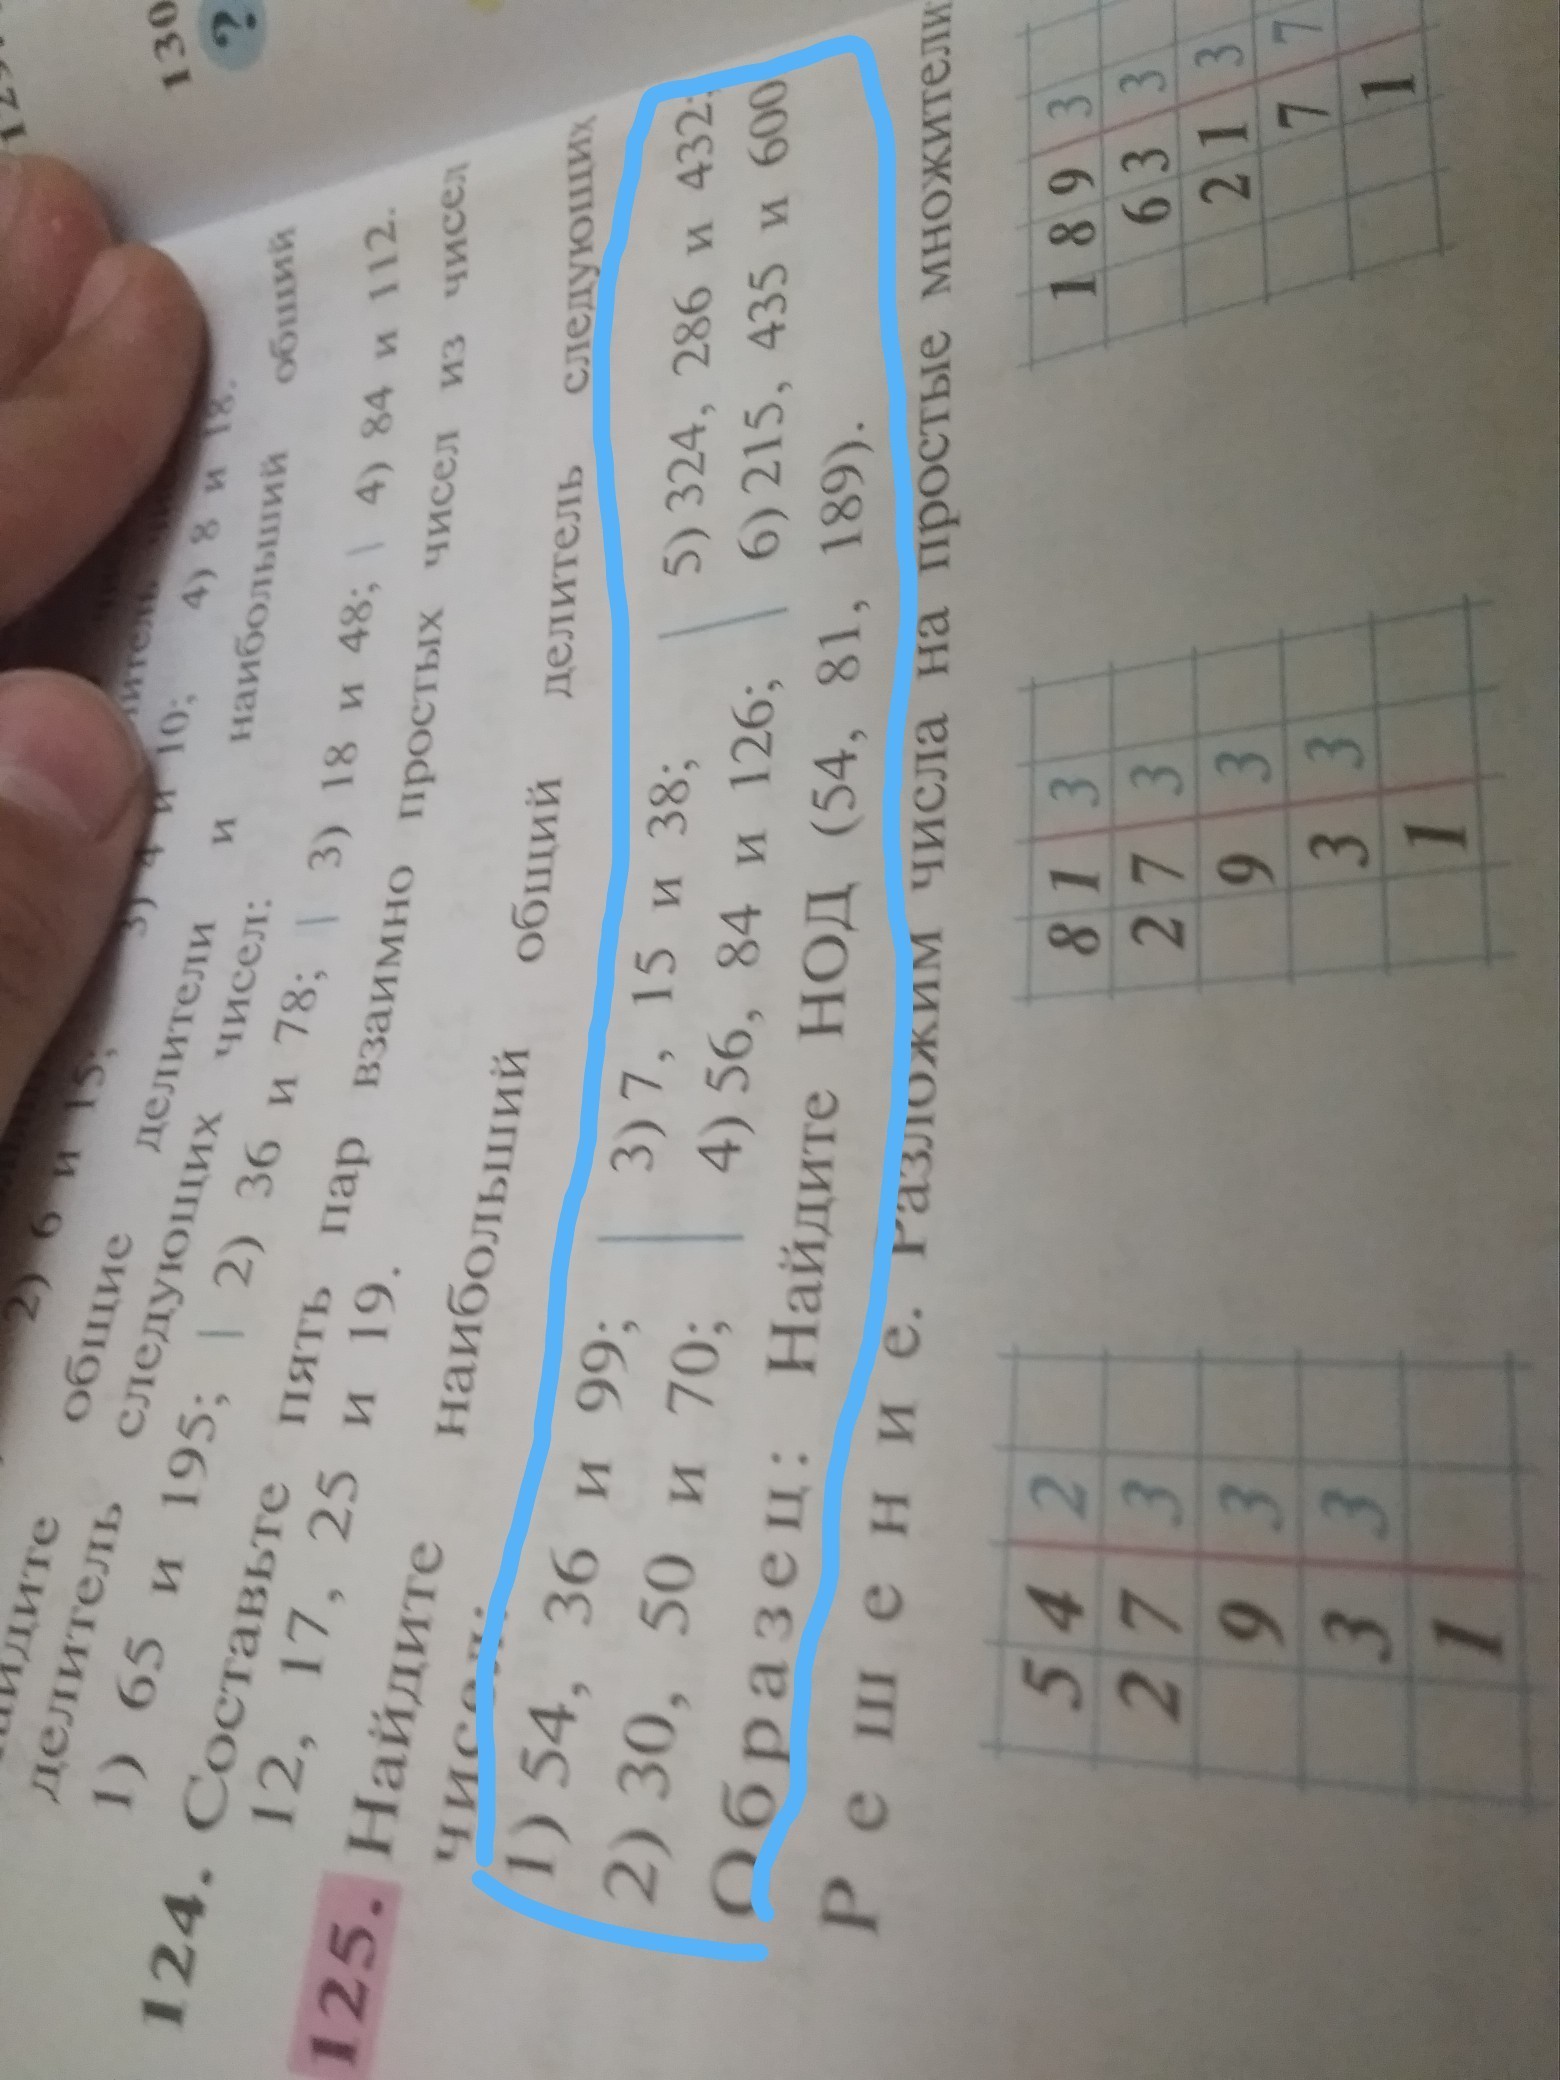 130
?
2) 6 и 15; 3) 4 и 10; 4) 8 и 18.
общие делители и наибольший общий
делитель следующих чисел:
1) 65 и 195; | 2) 36 и 78; | 3) 18 и 48; | 4) 84 и 112.
124. Составьте пять пар взаимно простых чисел из чисел
12, 17, 25 и 19.
125. Найдите наибольший общий делитель следующих
чисел:
1) 54, 36 и 99; | 3) 7, 15 и 38; | 5) 324, 286 и 432;
2) 30, 50 и 70; | 4) 56, 84 и 126; | 6) 215, 435 и 600
Образец: Найдите НОД (54, 81, 189).
Решение. Разложим числа на простые множители
54 2 81 3 189 3
27 3 27 3 63 3
9 3 9 3 21 3
3 3 3 3 7 7
1 1 1